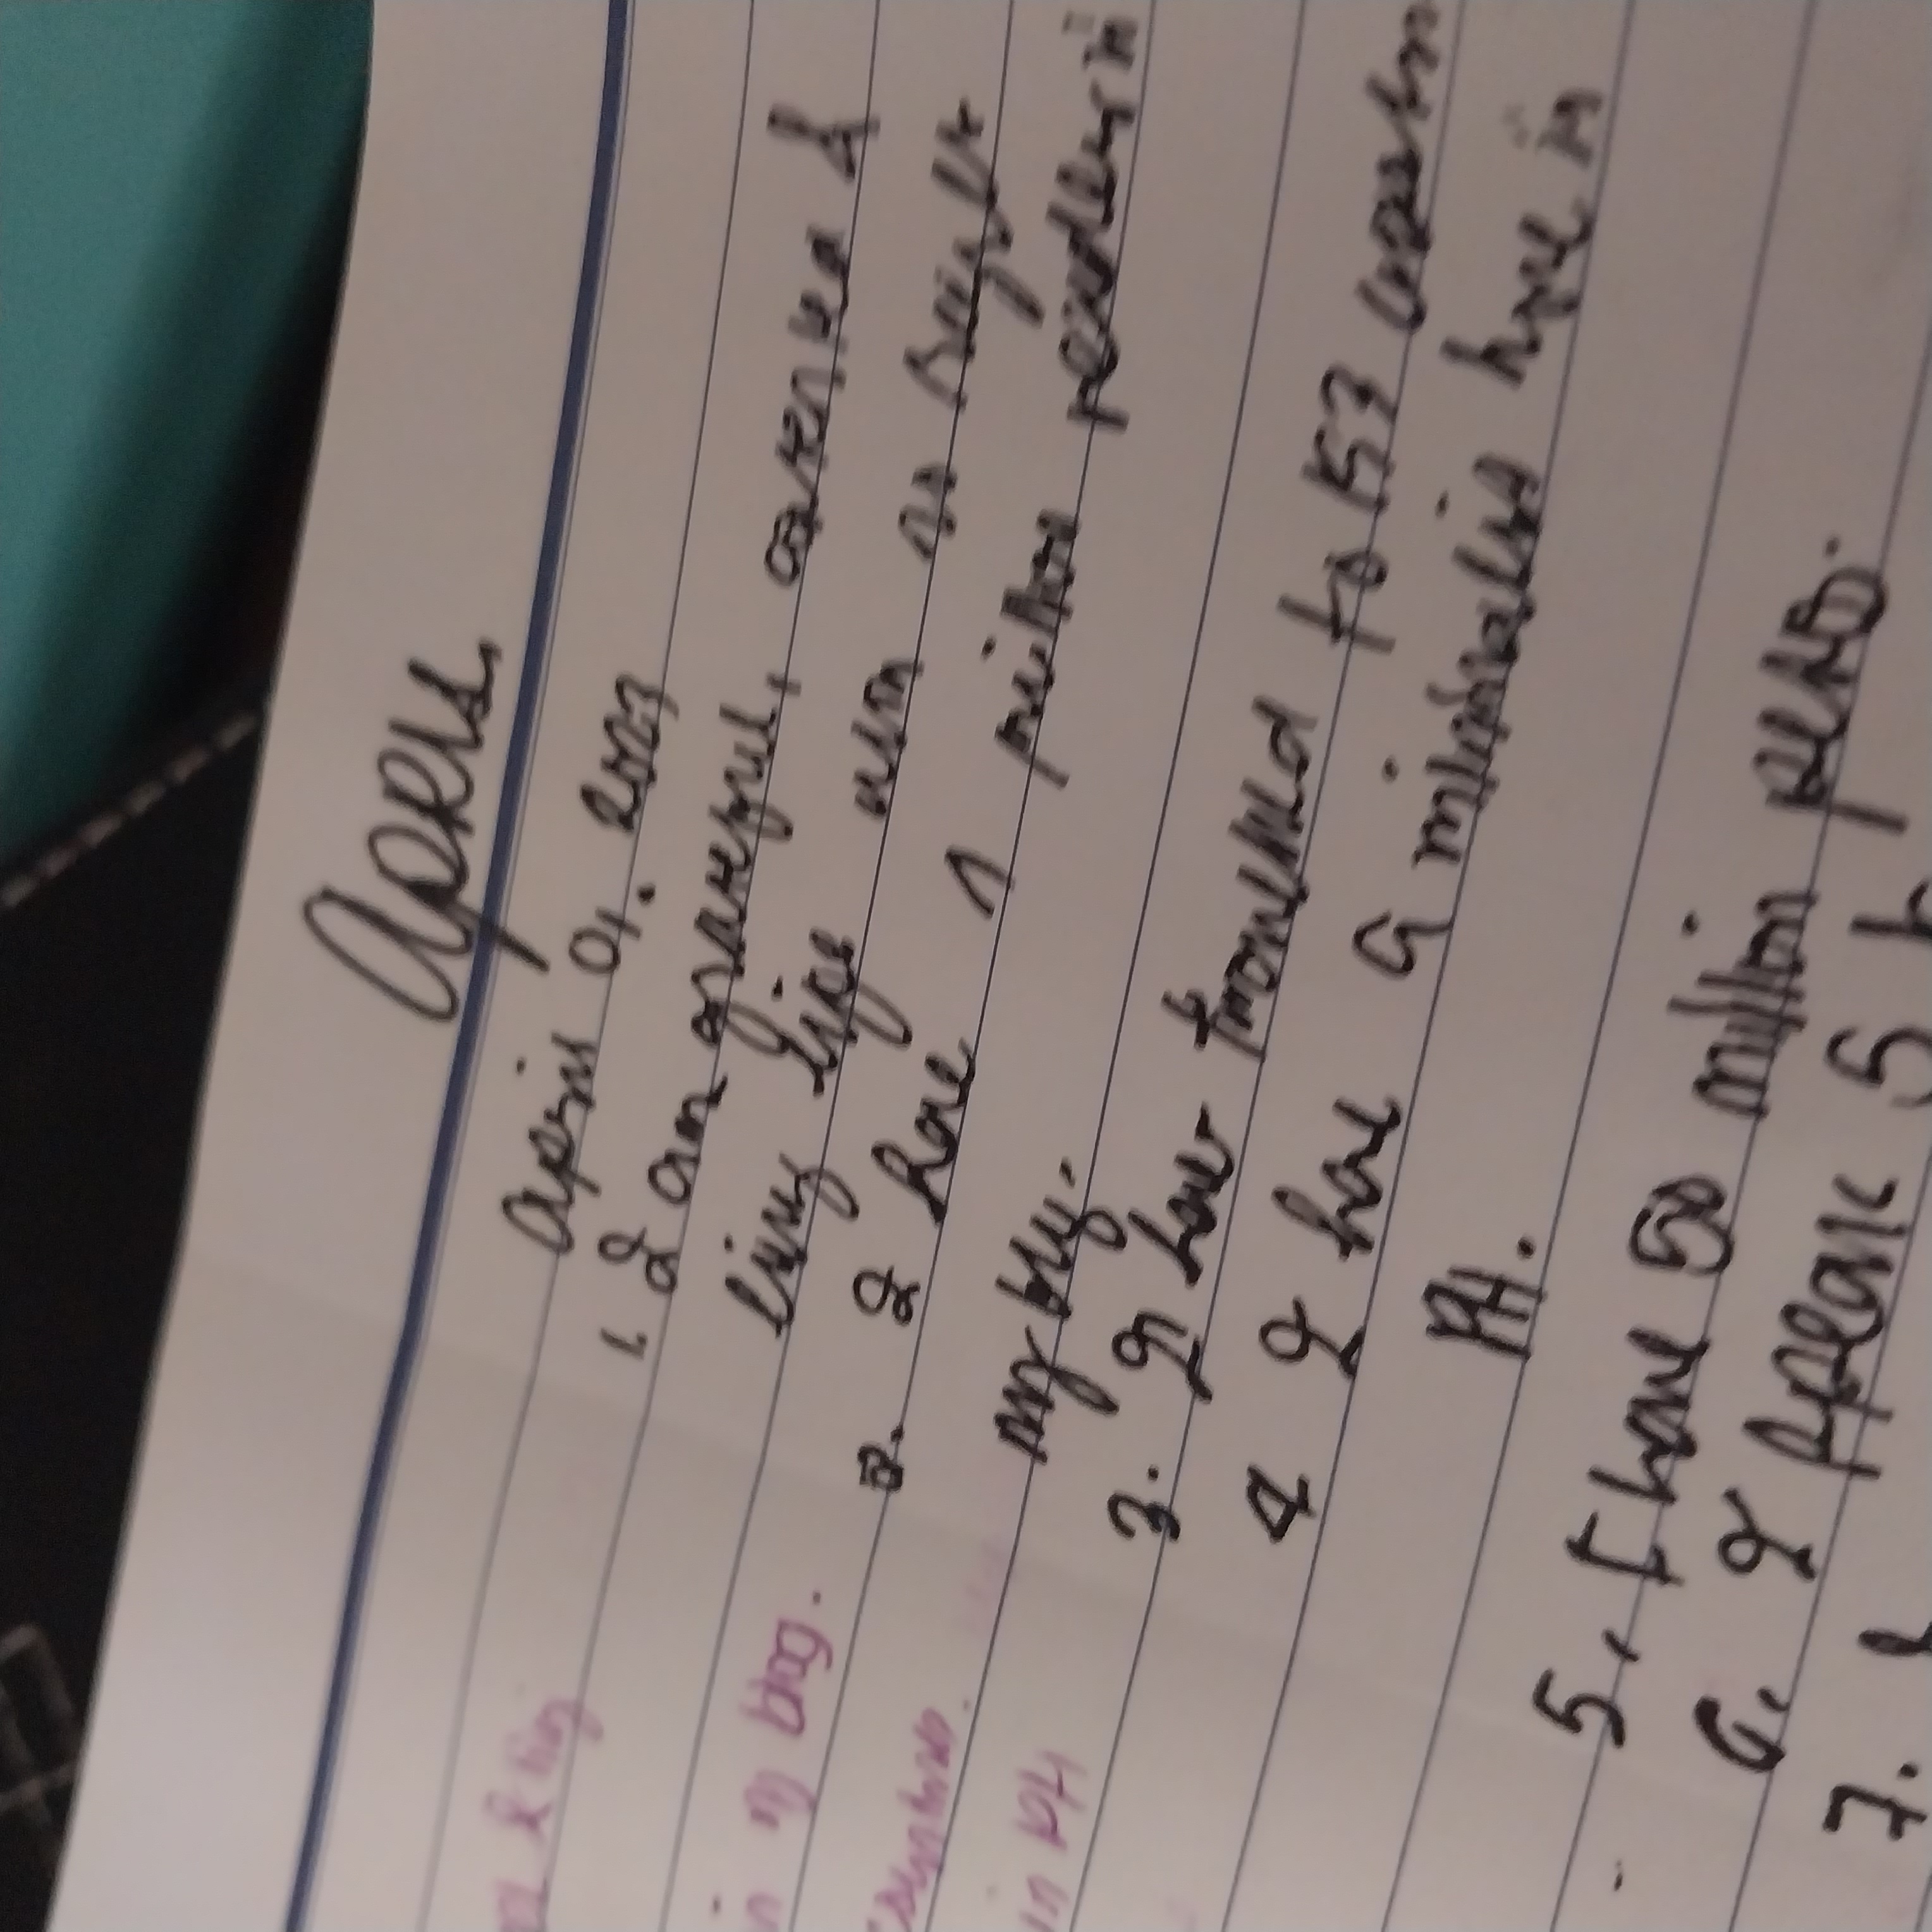 April
April 01. 2023
1. I am grateful, contented &
living life with no
2. I have 1 million readers in
my blog.
3. I have travelled to 153
4 I have a minimalist home in
PH.
5. I have 50 million pesos.
6. I speak 5
7.
& living
in my blog.
countries.
in PH